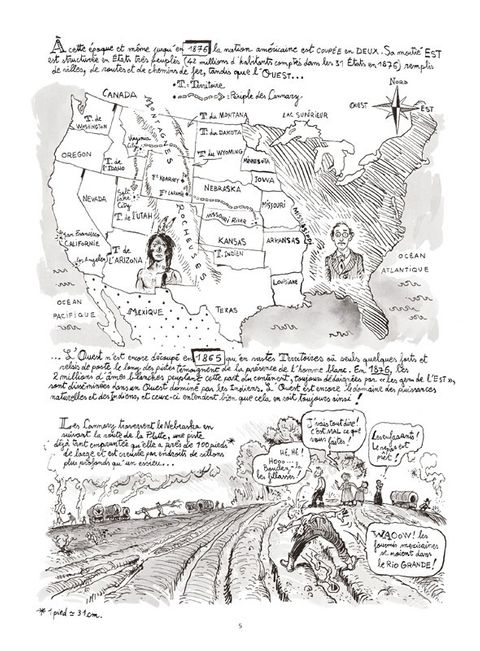 À cette époque et même jusqu'en 1876 la nation américaine est COUPÉE en DEUX. Sa moitié EST
est structurée en États très peuplés (42 millions d'habitants comptés dans les 31 États en 1876) remplis
de villes, de routes et de chemins de fer, tandis que l'OUEST...
T. : Territoire
: Périple des Lannary
NORD
OUEST
EST
CANADA
LAC SUPÉRIEUR
MONTAGNES
ROCHEUSES
T. de WASHINGTON
T. du MONTANA
Virginia City
T. du DAKOTA
OREGON
T. de l'IDAHO
T. du WYOMING
MINNESOTA
Ft KEARNEY
Ft LARAMIE
IOWA
NEVADA
Salt Lake City
NEBRASKA
MISSOURI
T. de l'UTAH
MISSOURI RIVER
MISSISSIPI
San Francisco
CALIFORNIE
KANSAS
ARKANSAS
T. Indien
Los Angeles
T. de L'ARIZONA
OCÉAN
ATLANTIQUE
LOUISIANE
OCÉAN
PACIFIQUE
MEXIQUE
TEXAS
... L'Ouest n'est encore découpé en 1865 qu'en vastes Territoires où seuls quelques forts et
relais de poste le long des pistes témoignent de la présence de l'homme blanc. En 1876, les
2 millions d'âmes blanches peuplant cette part du continent, toujours désignées par « les gens de L'EST »,
sont disséminées dans un Ouest dominé par les Indiens. L'Ouest est encore le domaine des puissances
naturelles et des Indiens, et ceux-ci entendent bien que cela en soit toujours ainsi !
Les Lannary traversent le Nebraska en
suivant la route de la Platte, une piste
déjà tant empruntée qu'elle a près de 100 pieds*
de large et est creusée par endroits de sillons
plus profonds qu'un essieu...
HÉ, HÉ !
Hooo...
Boudez
les fillasses !
J'vais tout dire !
c'est mal ce que
vous faites !
Les enfants !
Le repas est
prêt !
WAOOW ! les
fourmis mexicaines
se noient dans
le RIO GRANDE !
* 1 pied ≃ 31 cm.
5